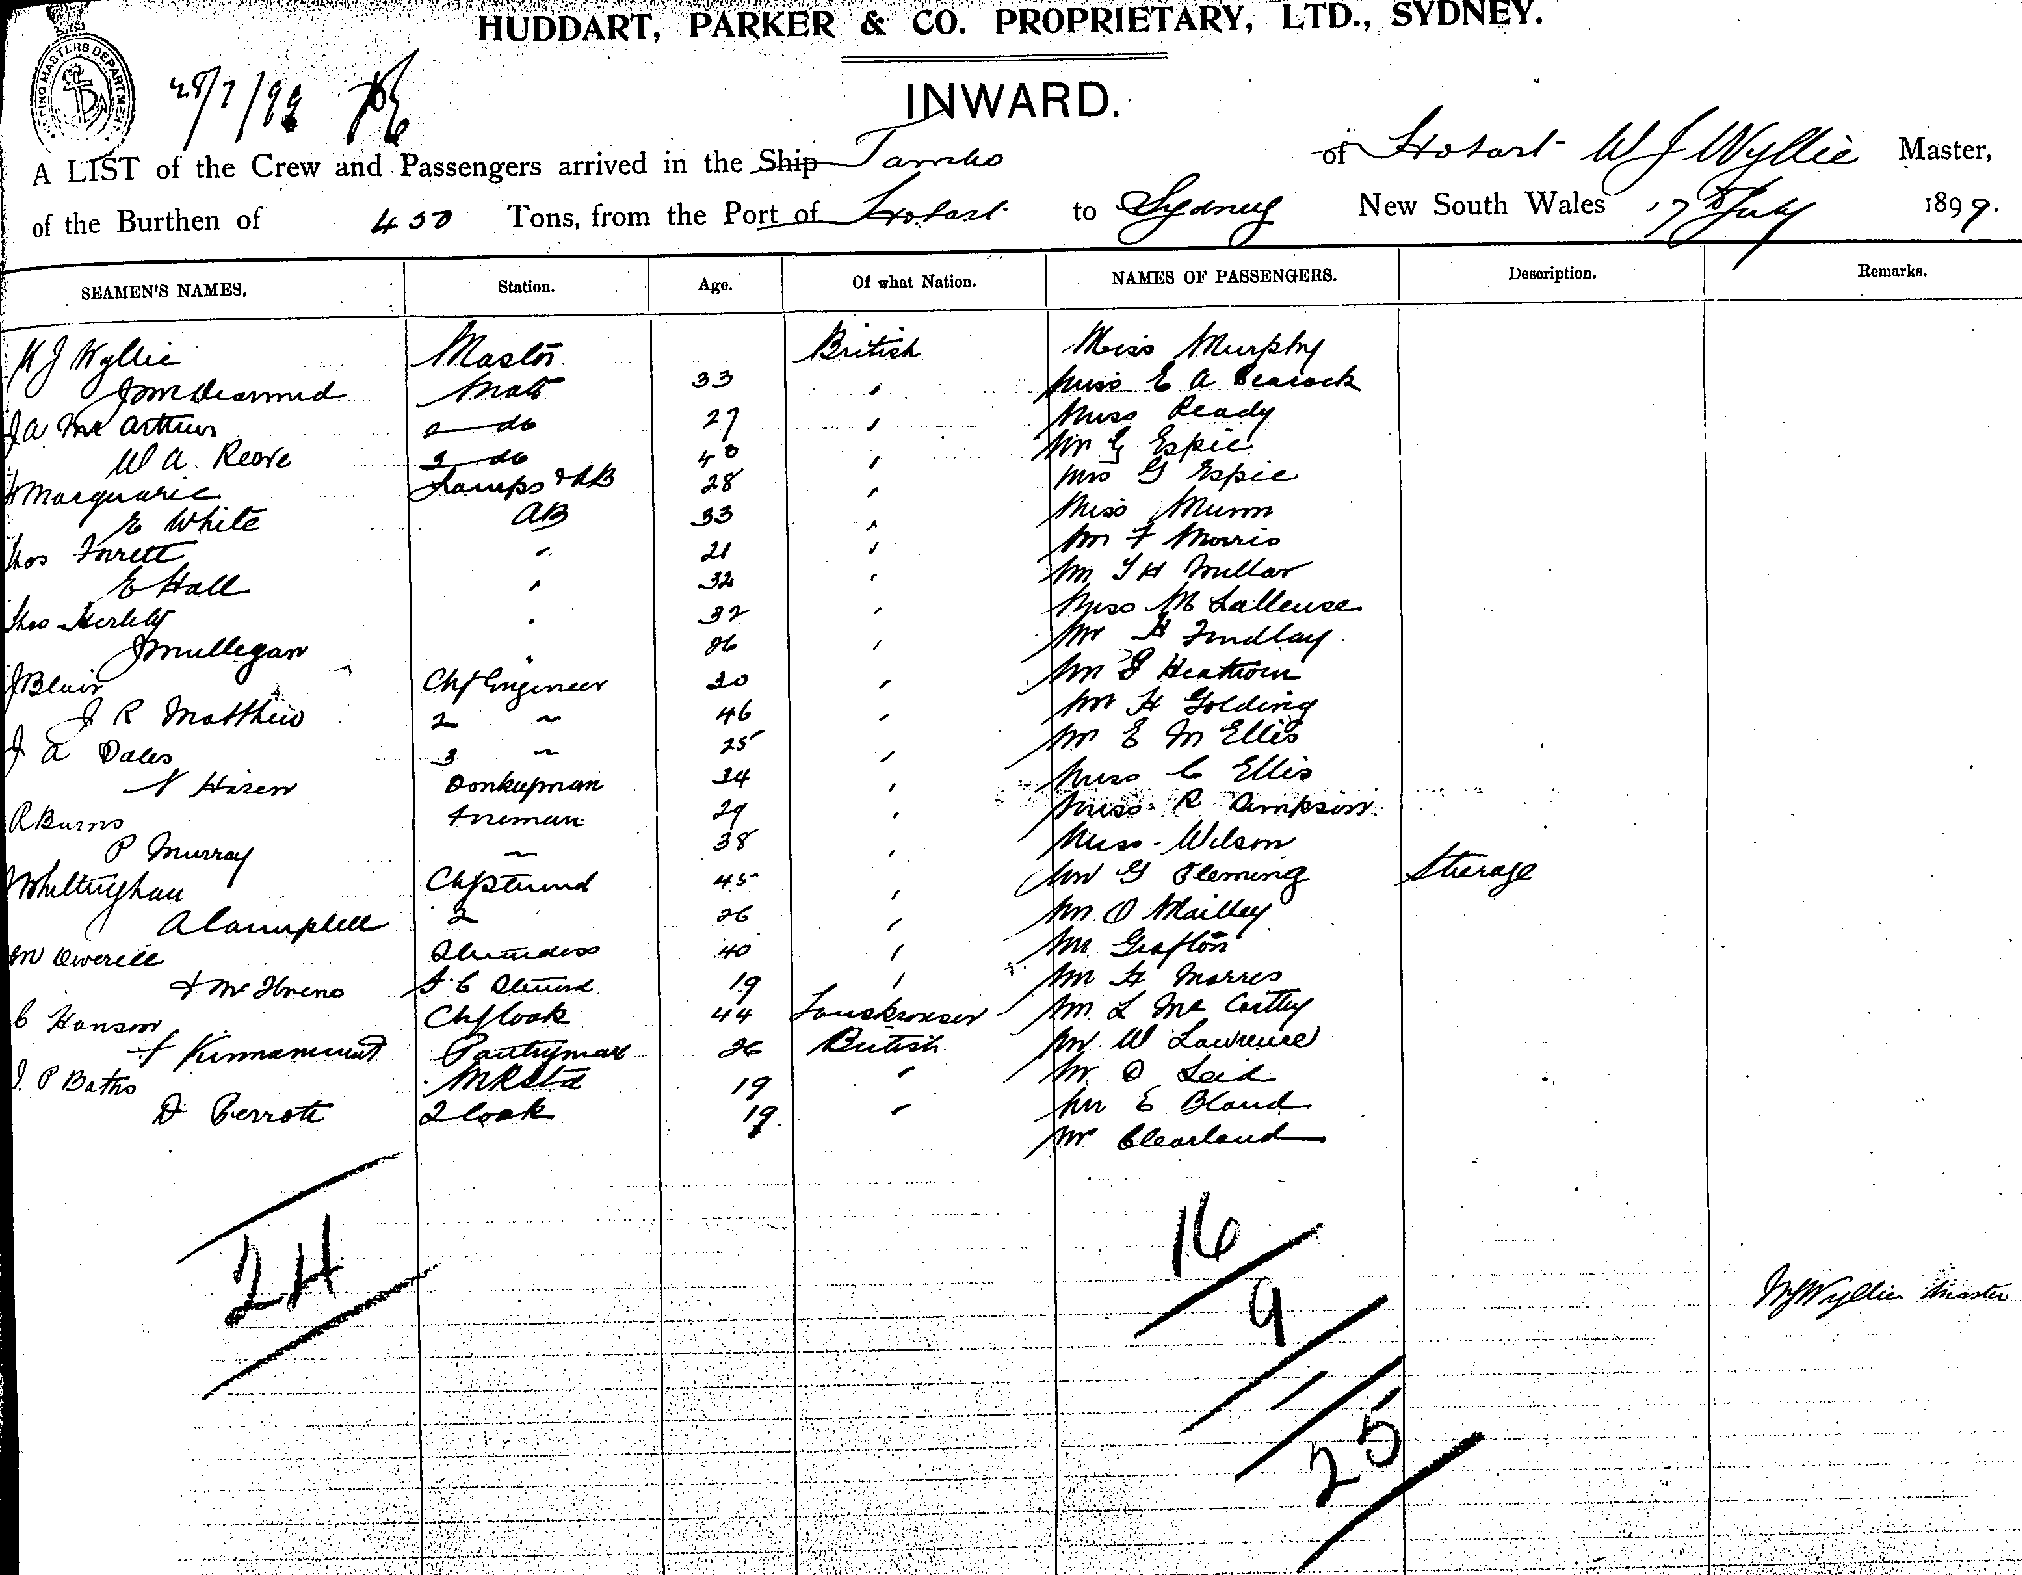 HUDDART, PARKER & CO. PROPRIETARY, LTD., SYDNEY.
SHIPPING MASTERS DEPARTMENT
28/7/99
INWARD.
A LIST of the Crew and Passengers arrived in the Ship Tambo of Hobart W J Wyllie Master,
of the Burthen of 450 Tons, from the Port of Hobart to Sydney New South Wales 17th July 1899.
SEAMEN'S NAMES. Station. Age. Of what Nation. NAMES OF PASSENGERS. Description. Remarks.
W J Wyllie Master British Miss Murphy
J McDearmid Mate 33 " Miss E A Peacock
J A McArthur 2 do 27 " Miss Ready
W A Reeve 3 do 40 " Mr G Espie
Macquarie Lamps & AB 28 " Mrs G Espie
E White AB 33 " Miss Munn
Thos " 21 " Mr F Morris
E Hall " 32 " Mr T H Millar
Thos Herlihy " 32 " Miss M
J Mulligan " 26 " Mr H Findlay
J Blair Chf Engineer 30 " Mr G
J R Matthew 2 " 46 " Mr H Golding
J A Dales 3 " 25 " Mr E M Ellis
N Donkeyman 34 " Miss C Ellis
R Burns Fireman 29 " Miss R Simpson
P Murray " 38 " Miss Wilson
Whittingham Chf Steward 45 " Mr G Fleming Steerage
A Campbell 2 26 " Mr O Mailley
M Stewardess 40 " Mr Grafton
F S. C Steward 19 " Mr H Morris
C Hanson Chf Cook 44 Mr L McCartley
F Pantryman 26 British Mr W Lawrence
J P Baths M R Std 19 " Mr O
D Perrott 2 Cook 19 " Mr E Bland
Mr Clearland
24
16
9
25
W J Wyllie Master